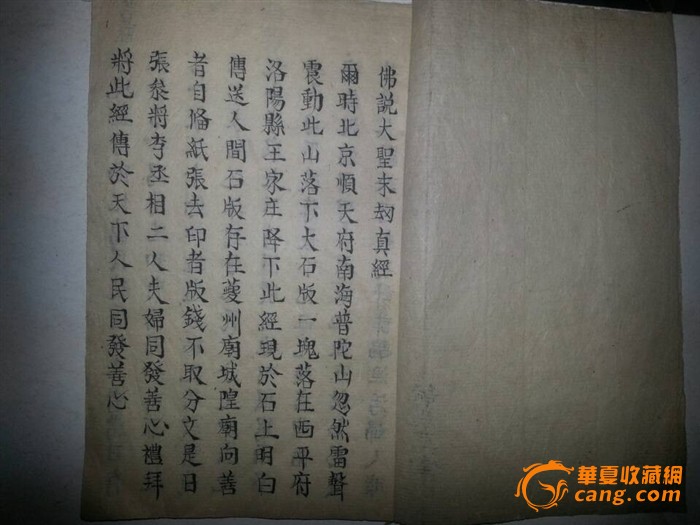 佛說大聖末刼真經
爾時北京順天府南海普陀山忽然雷聲
震動此山落下大石版一塊落在西平府
洛陽縣王家庄降下此經現於石上明白
傳送人間石版存在夔州廟城隍廟向善
者自俻紙張去印者版錢不取分文是日
張叅將李丞相二人夫婦同發善心禮拜
將此經傳於天下人民同發善心
華夏收藏網
cang.com